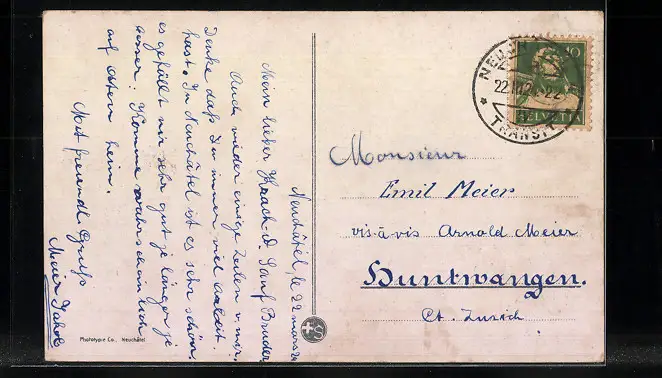 Neuchâtel, le 22 mars 24
Mein lieber
Auch wieder einige Zeilen v. mir.
Denke daß Du immer viel Arbeit
hast. In Neuchâtel ist es sehr schön,
es gefällt mir sehr gut je länger je
besser. Komme wahrscheinlich
auf Ostern heim.
Mit freundl. Gruß
Meier Jakob
Phototypie Co., Neuchâtel
S
NEUCH
22.III.24
TRANSIT
10
HELVETIA
Monsieur
Emil Meier
vis-à-vis Arnold Meier
Huntwangen.
Ct. Zürich